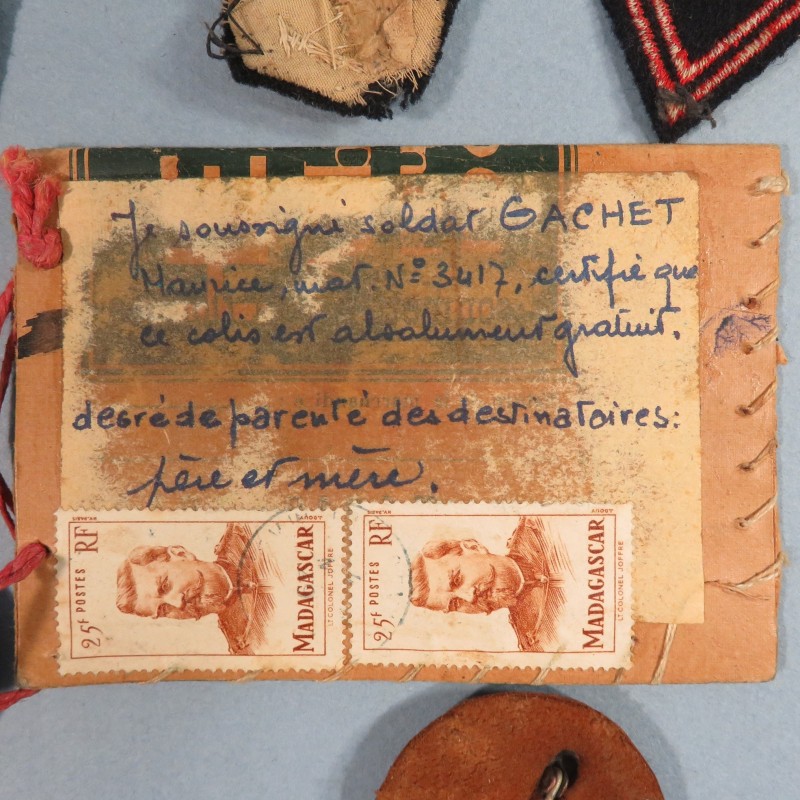 Je soussigné soldat GACHET
Maurice, mat. N° 3417, certifie que
ce colis est absolument gratuit.
degré de parenté des destinatoires:
père et mère.
25F POSTES RF
MADAGASCAR
LT COLONEL JOFFRE
25F POSTES RF
MADAGASCAR
LT COLONEL JOFFRE